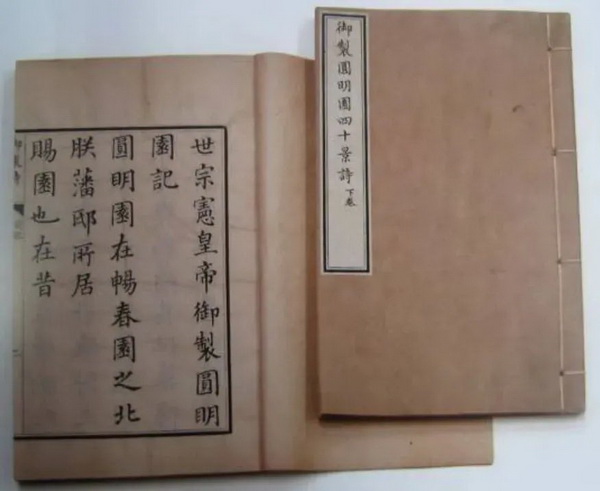 御製圓明園四十景詩 下卷
世宗憲皇帝御製圓明
園記
圓明園在暢春園之北
朕藩邸所居
賜園也在昔
御製詩